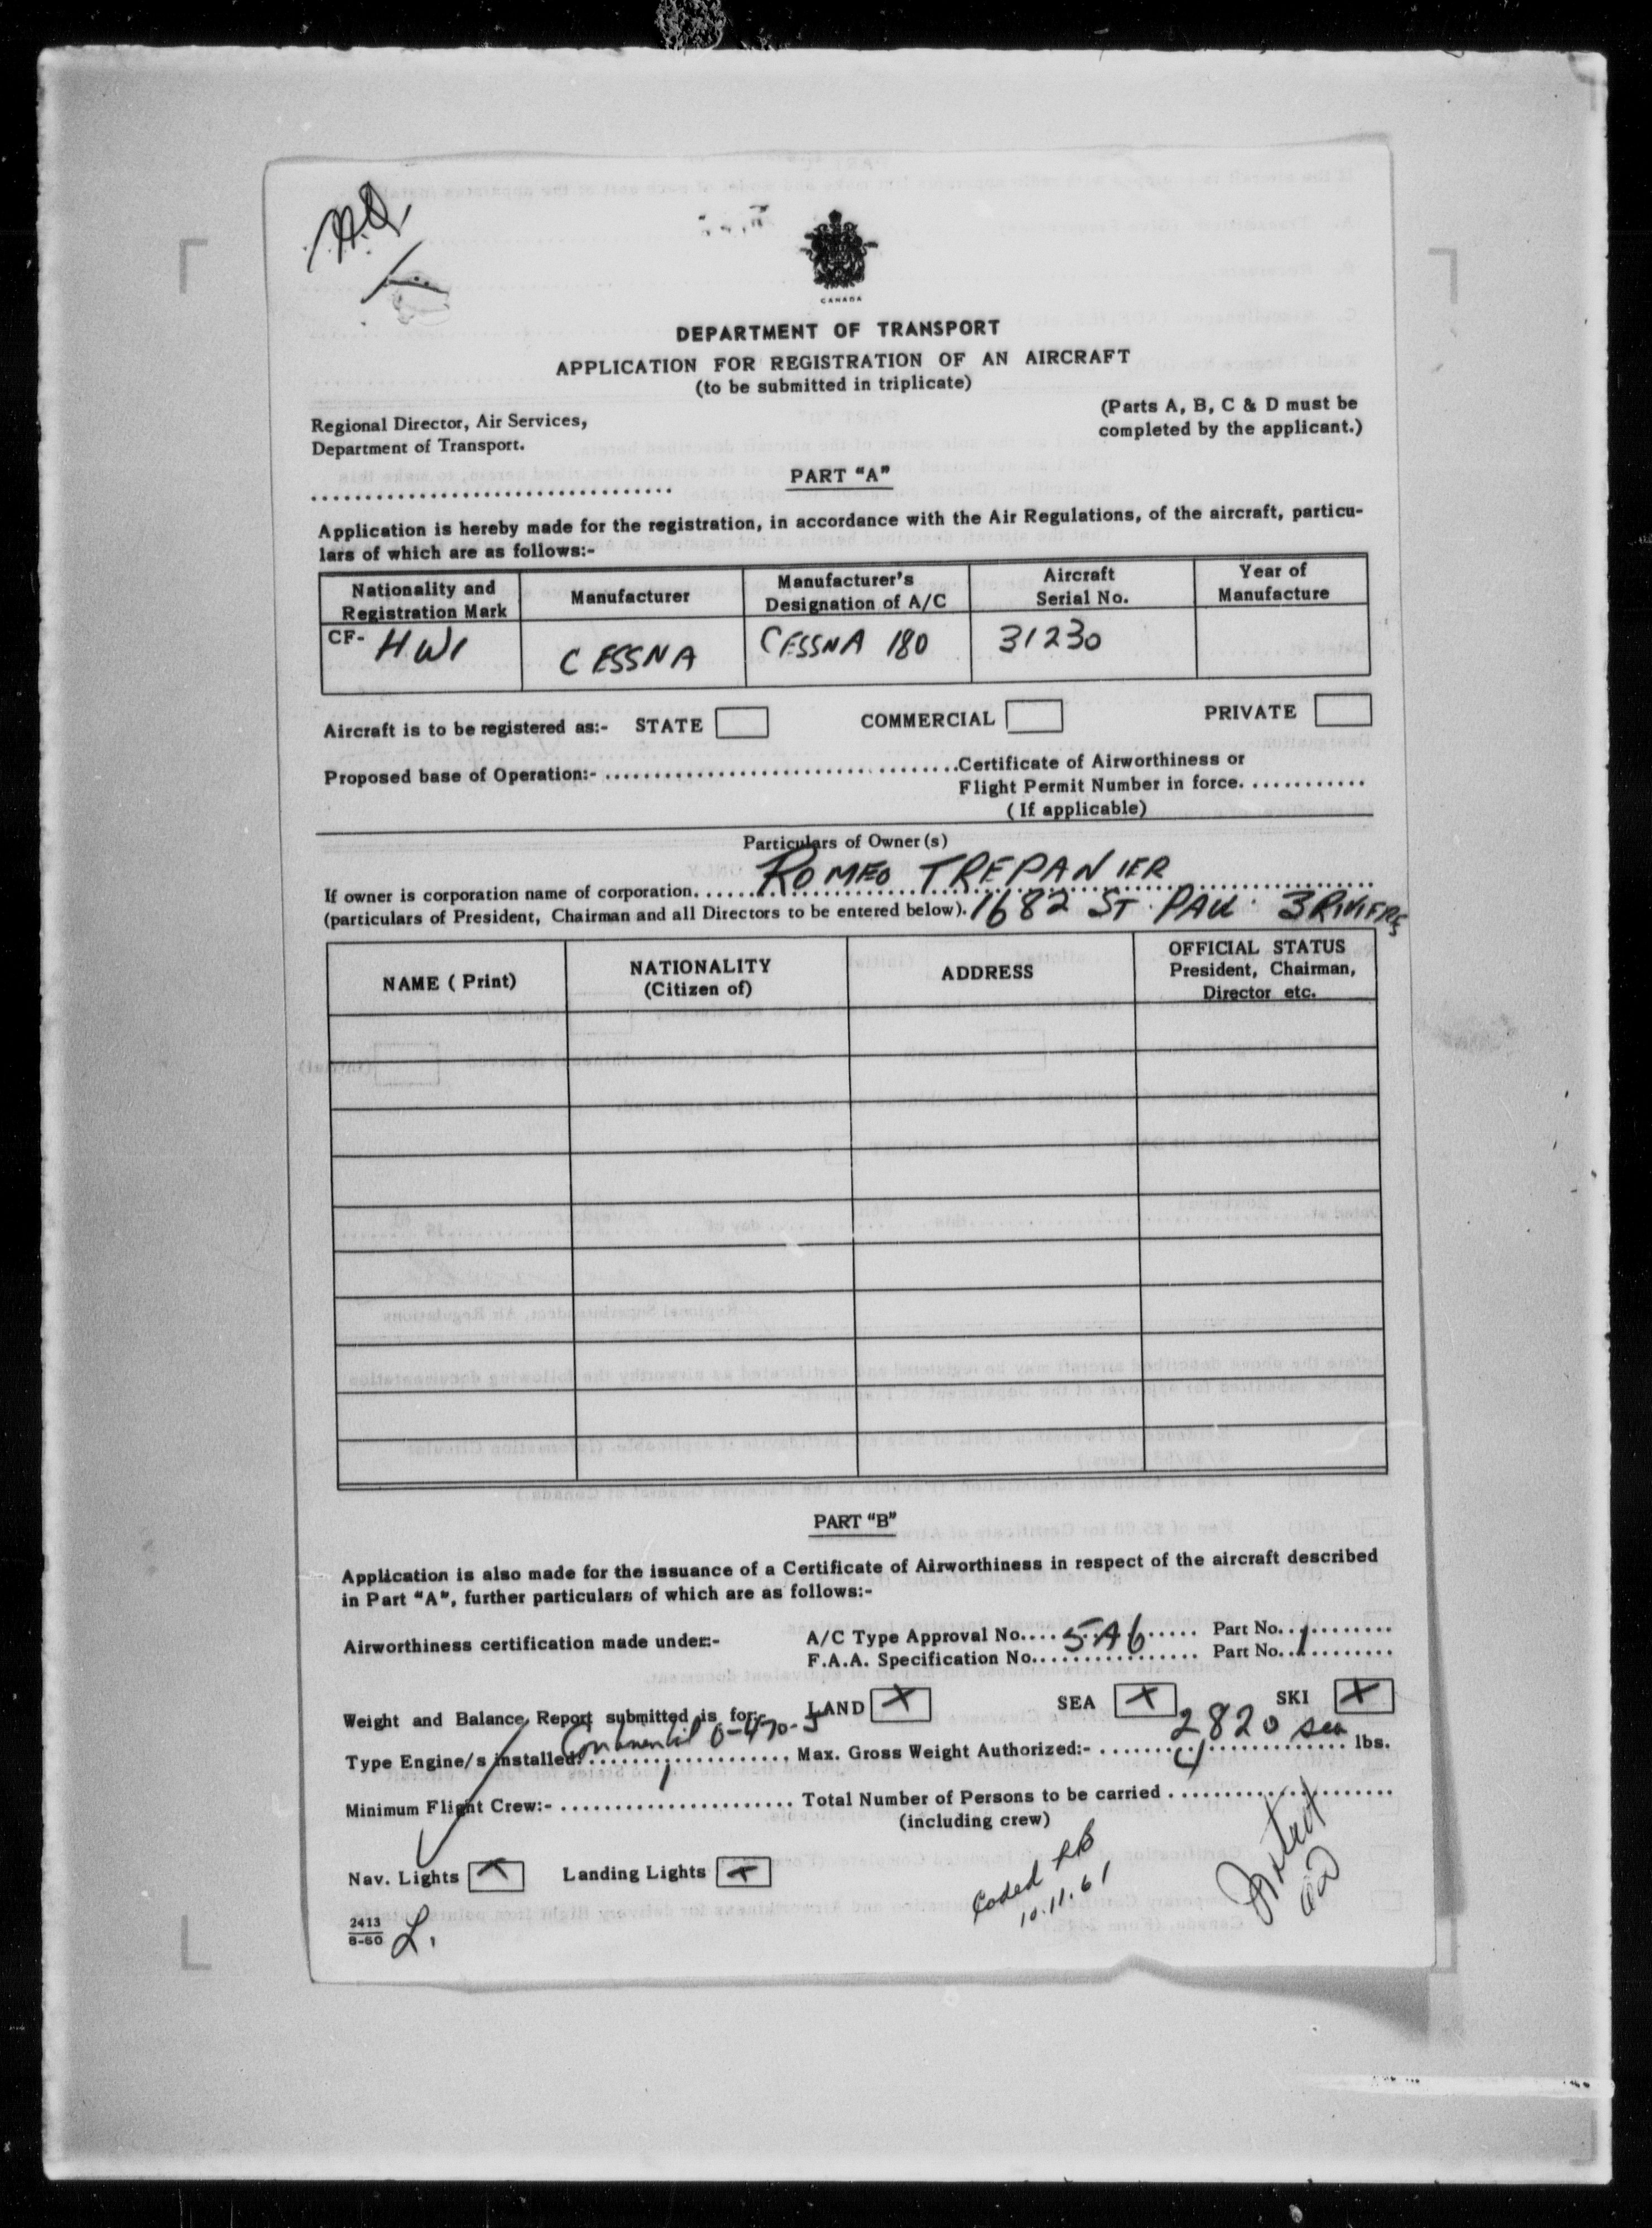 H.Q.
CANADA
DEPARTMENT OF TRANSPORT
APPLICATION FOR REGISTRATION OF AN AIRCRAFT
(to be submitted in triplicate)
Regional Director, Air Services,
Department of Transport.
(Parts A, B, C & D must be
completed by the applicant.)
PART "A"
Application is hereby made for the registration, in accordance with the Air Regulations, of the aircraft, particu-
lars of which are as follows:-
Nationality and Registration Mark
Manufacturer
Manufacturer's Designation of A/C
Aircraft Serial No.
Year of Manufacture
CF- HWI
CESSNA
CESSNA 180
31230
Aircraft is to be registered as:- STATE COMMERCIAL PRIVATE
Proposed base of Operation:- Certificate of Airworthiness or
Flight Permit Number in force.
(If applicable)
Particulars of Owner(s)
If owner is corporation name of corporation. ROMEO TREPANIER
(particulars of President, Chairman and all Directors to be entered below). 1682 ST. PAU 3 RIVIERES
NAME (Print)
NATIONALITY (Citizen of)
ADDRESS
OFFICIAL STATUS President, Chairman, Director etc.
PART "B"
Application is also made for the issuance of a Certificate of Airworthiness in respect of the aircraft described
in Part "A", further particulars of which are as follows:-
Airworthiness certification made under:- A/C Type Approval No. 5A6 Part No.
F.A.A. Specification No. Part No. 1
Weight and Balance Report submitted is for:- LAND X SEA X SKI X
Type Engine/s installed: Continental O-470-J Max. Gross Weight Authorized:- 2820 sea lbs.
Minimum Flight Crew:- 1 Total Number of Persons to be carried 4
(including crew)
Nav. Lights X Landing Lights X
Coded RB
10.11.61
2413
8-60
L.